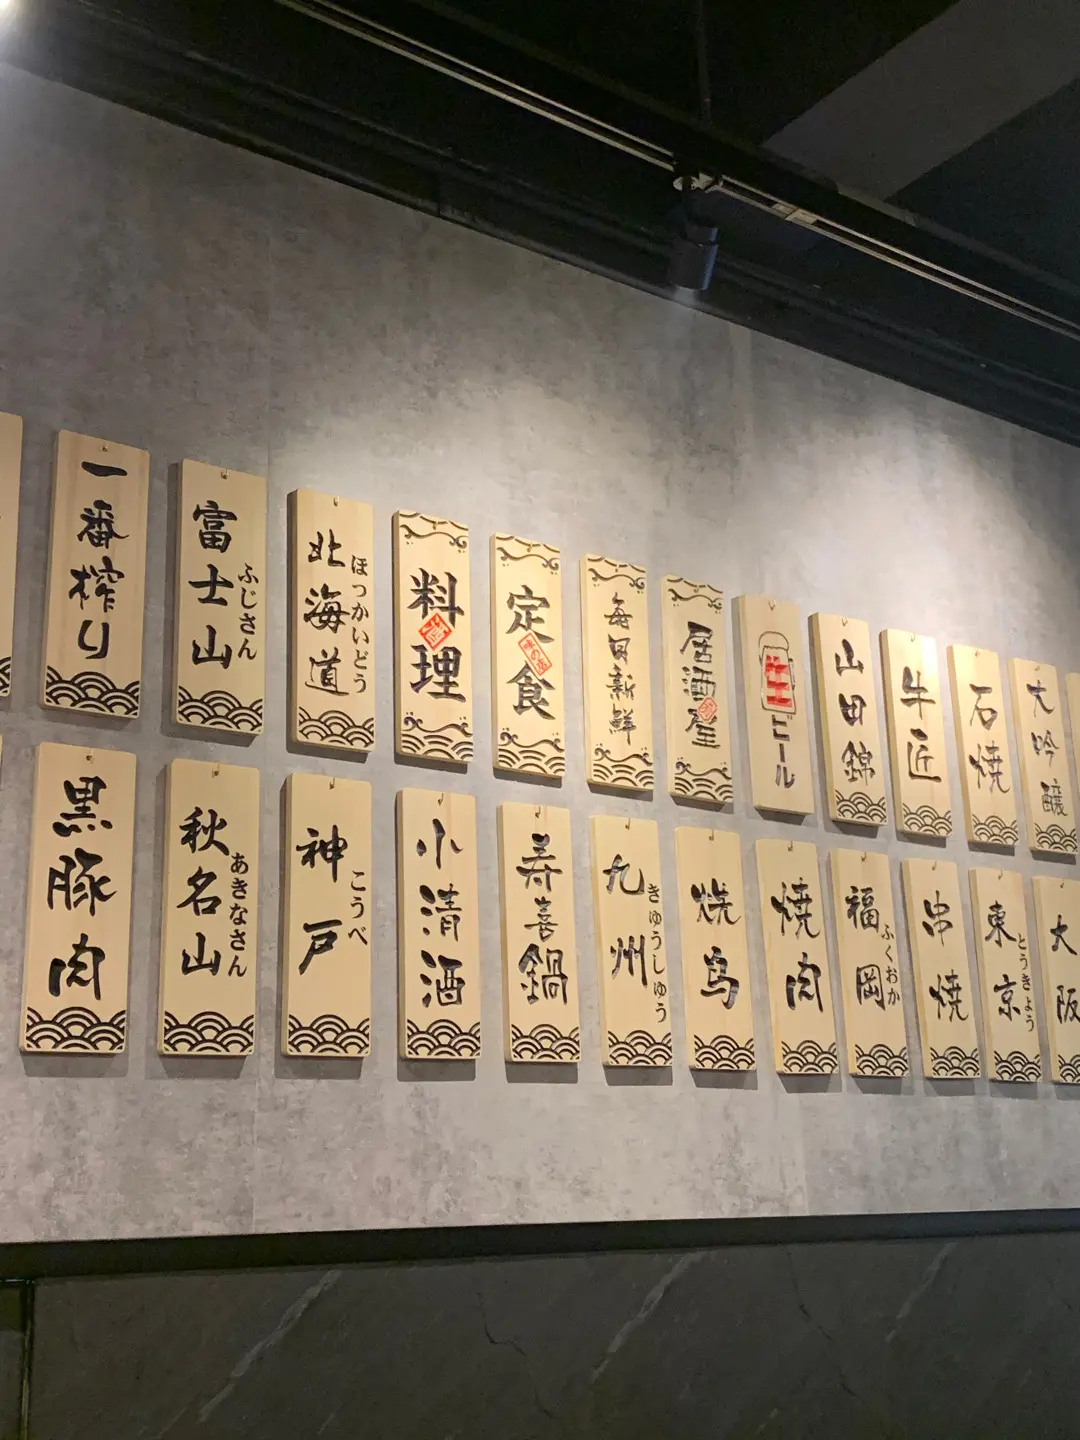 一番搾り
富士山 ふじさん
北海道 ほっかいどう
料理
定食
毎日新鮮
居酒屋
生ビール
山田錦
牛匠
石焼
大吟醸
黒豚肉
秋名山 あきなさん
神戸 こうべ
小清酒
寿喜鍋
九州 きゅうしゅう
焼鸟
焼肉
福岡 ふくおか
串焼
東京 とうきょう
大阪